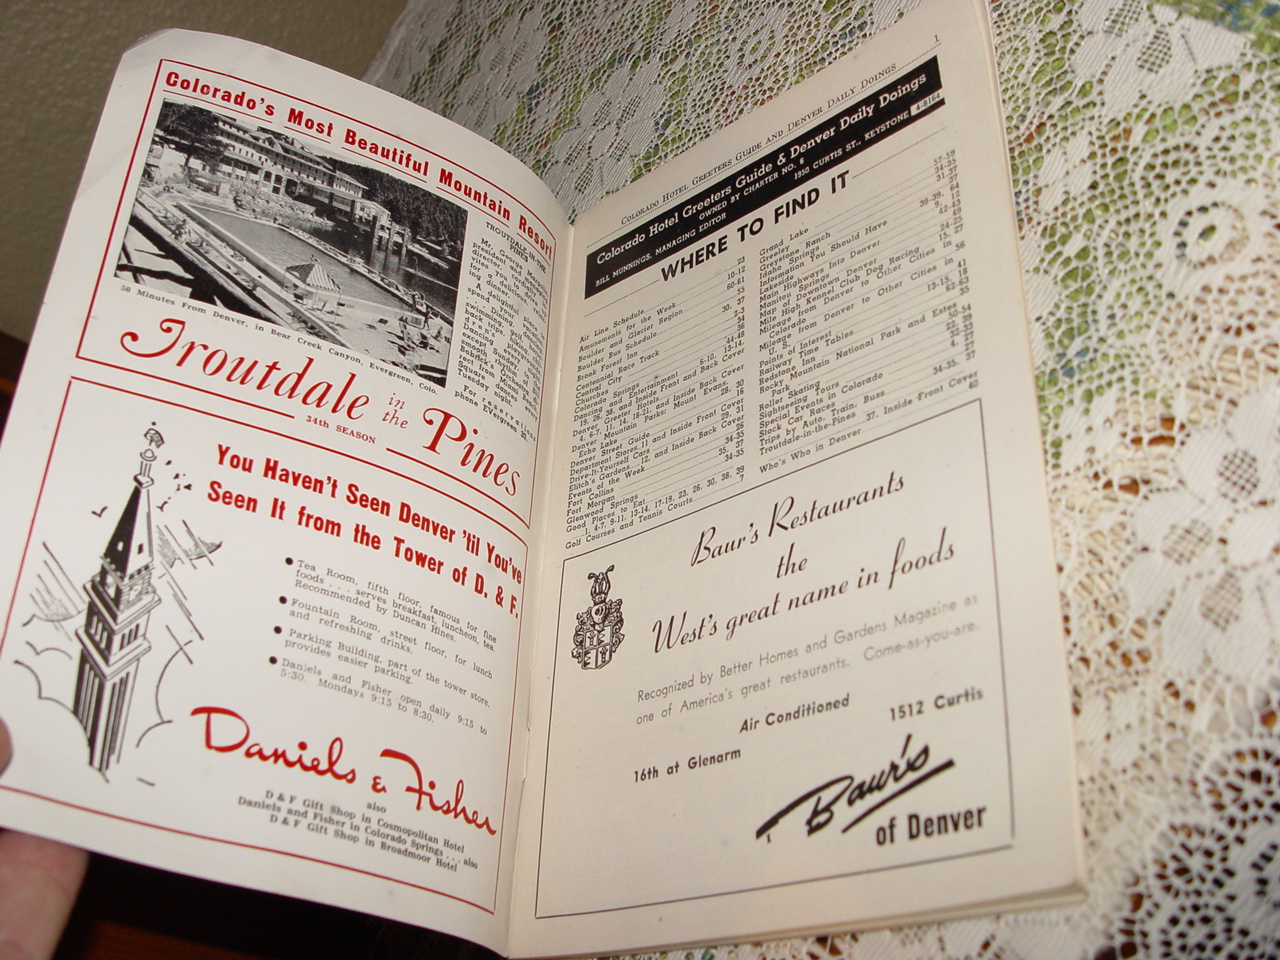 Colorado's Most Beautiful Mountain Resort
TROUTDALE-IN-THE
PINES
Mr. George
president and managing
director, cordially in-
vites you to drive up
for a delicious
A delightful place to
spend
swimming,
back trips, hiking,
Dancing every night
except Sunday,
smooth rhythm of the
Orchestra,
rect from
Square dances every
Tuesday night
For reservations
phone Evergreen
50 Minutes From Denver, in Bear Creek Canyon, Evergreen, Colo.
Troutdale in the Pines
34th SEASON
You Haven't Seen Denver 'til You've
Seen It from the Tower of D. & F.
Tea Room, fifth floor, famous for fine
foods . . . serves breakfast, luncheon, tea.
Recommended by Duncan Hines.
Fountain Room, street floor, for lunch
and refreshing drinks.
Parking Building, part of the tower store,
provides easier parking.
Daniels and Fisher open daily 9:15 to
5:30. Mondays 9:15 to 8:30.
Daniels & Fisher
also
D & F Gift Shop in Cosmopolitan Hotel
Daniels and Fisher in Colorado Springs . . . also
D & F Gift Shop in Broadmoor Hotel
COLORADO HOTEL GREETERS GUIDE AND DENVER DAILY DOINGS 1
Colorado Hotel Greeters Guide & Denver Daily Doings
OWNED BY CHARTER NO. 6
BILL MUNNINGS, MANAGING EDITOR 1950 CURTIS ST., KEYSTONE 4-8164
WHERE TO FIND IT
Air Line Schedule 23
Amusements for the Week 10-12
Boulder and Glacier Region 60-61
Boulder Bus Schedule 55
Brook Forest Inn 30, 37
Centennial Race Track 2-3
Central City 34
Churches 36
Colorado Springs 44-48
Dancing and Entertainment 6-10, 13-14,
19, 26, 38, and Inside Front and Back Cover
Denver
4, 6-7, 11, 14, 18-21, and Inside Back Cover
Denver Mountain Parks; Mount Evans,
Echo Lake 28, 30
Denver Street Guide 16
Department Stores 11 and Inside Front Cover
Drive-It-Yourself Cars 29, 31
Elitch's Gardens 12, and Inside Back Cover
Events of the Week 26
Fort Collins 34-35
Fort Morgan 35, 37
Glenwood Springs 34-35
Good Places to Eat,
1, 4-7, 9-11, 13-14, 17-19, 23, 26, 30, 38, 39
Golf Courses and Tennis Courts 7
Grand Lake 57-59
Greeley 34-35
Greystone Ranch 31, 37
Idaho Springs 64
Information You Should Have 38-39,
Lakeside 9, 12
Main Highways Into Denver 42-43
Manitou Springs 49
Map of Downtown Denver 24-25
Mile High Kennel Club Dog Racing 15, 27
Mileage from Denver to Other Cities in
Colorado 56
Mileage from Denver to Other Cities in
U. S. 41
Points of Interest 13-15, 18
Railway Time Tables 62-63
Redstone Inn 35
Rocky Mountain National Park and Estes
Park 50-54
Roller Skating
Sightseeing Tours 32-33
Special Events in Colorado 4
Stock Car Races 27
Trips by Auto, Train, Buss 34-35, 37
Troutdale-in-the-Pines 37, Inside Front Cover
Who's Who in Denver 40
Baur's Restaurants
the
West's great name in foods
Recognized by Better Homes and Gardens Magazine as
one of America's great restaurants. Come-as-you-are.
Air Conditioned
16th at Glenarm 1512 Curtis
Baur's
of Denver